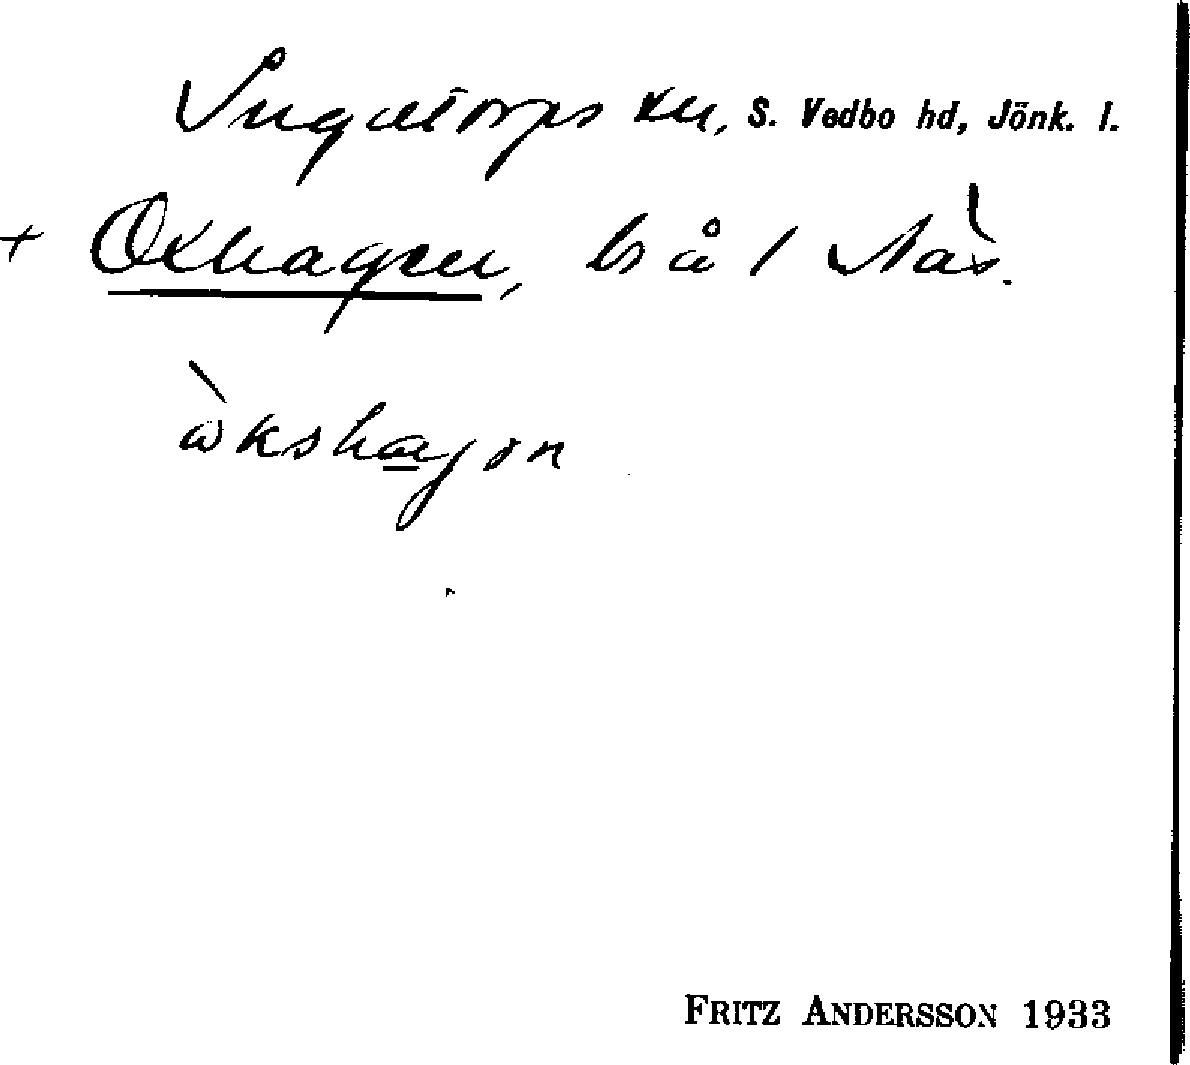 Ingatorps sn, S. Vedbo hd, Jönk. l.
+ Oxhagen, bs å 1 Näs.
ὼkshagən
FRITZ ANDERSSON 1933